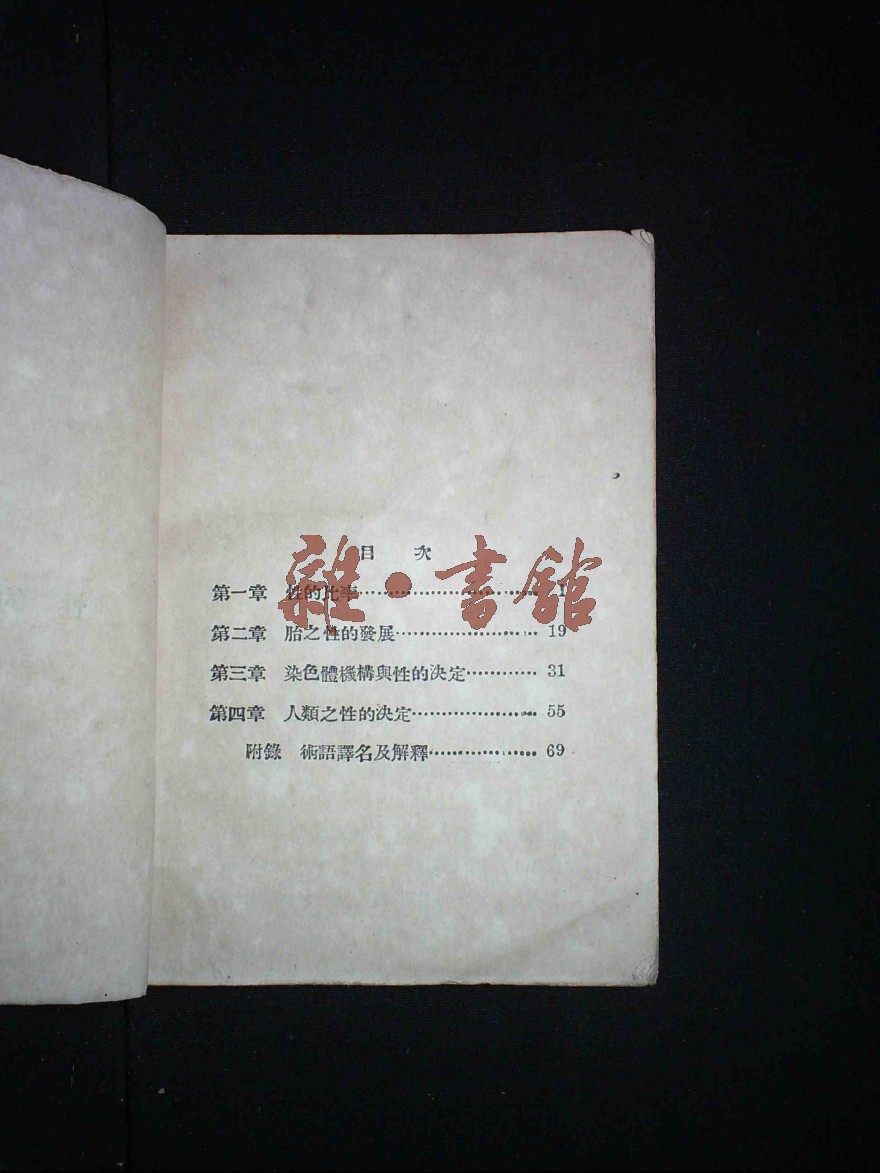 目 次
雜·書館
第一章 性的比率………………………… 1
第二章 胎之性的發展………………… 19
第三章 染色體機構與性的決定………… 31
第四章 人類之性的決定……………… 55
附錄 術語譯名及解釋……………… 69